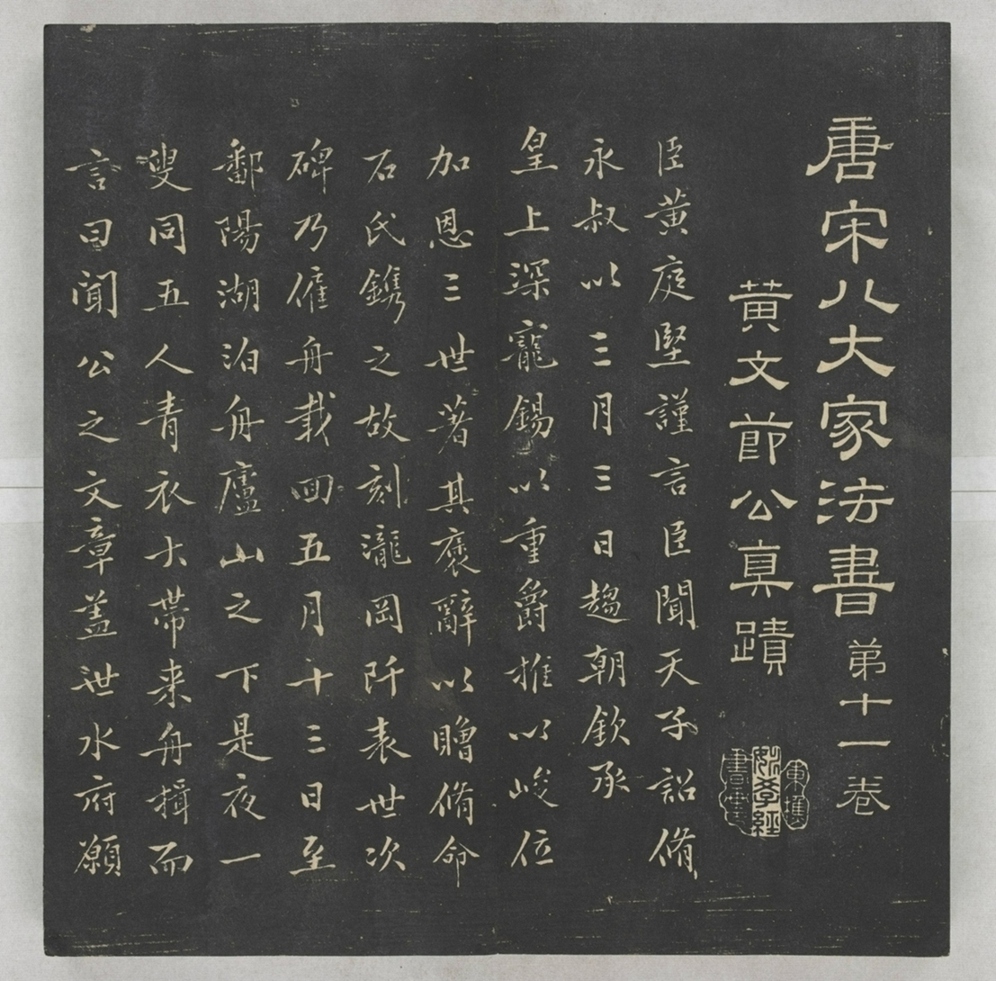 唐宋八大家法書第十一卷
黄文節公真蹟
臣黄庭堅謹言臣聞天子詔脩
永叔以三月三日趨朝欽承
皇上深寵錫以重爵推以峻位
加恩三世著其褒辭以贈脩命
石氏鐫之故刻瀧岡阡表世次
碑乃僱舟載回五月十三日至
鄱陽湖泊舟廬山之下是夜一
叟同五人青衣大帶来舟揖而
言曰聞公之文章盖世水府願